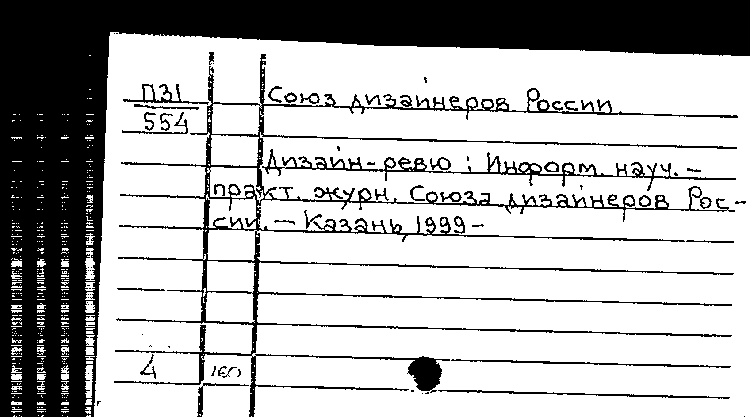 П31 Союз дизайнеров России
554
Дизайн-ревю : Информ. науч. –
практ. журн. Союза дизайнеров Рос-
сии. – Казань, 1999 –
4 160